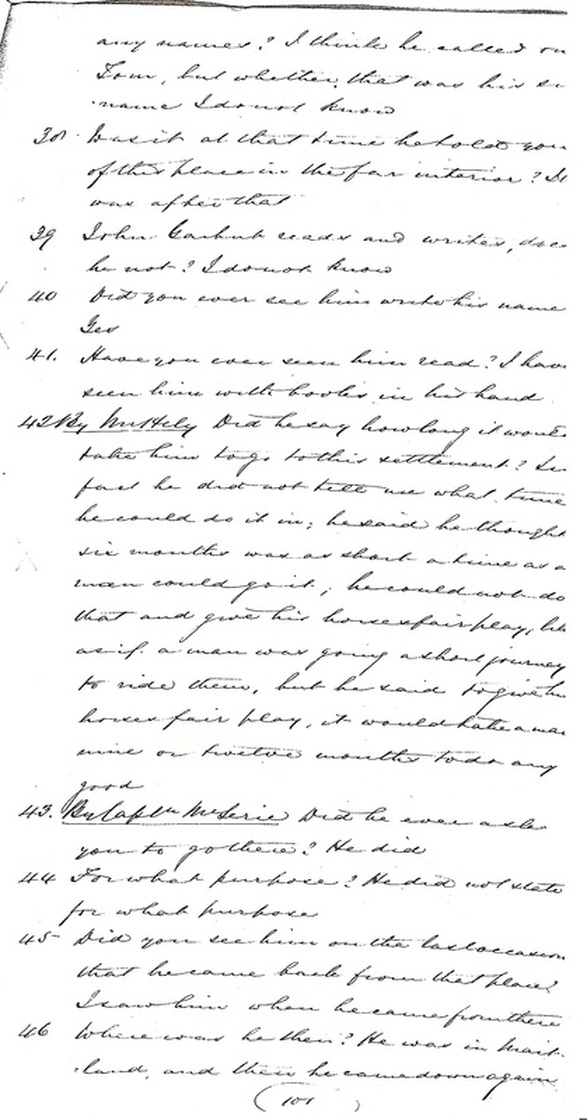 any names? I think he called on
Tom, but whether that was his
name I do not know
38. Was it at that time he told you
of this place in the far interior? It
was after that
39 John reads and writes, does
he not? I do not know
40 Did you ever see him write his name
Yes
41. Have you ever seen him read? I have
seen him with books in his hand
42 By Mr Hely Did he say how long it would
take him to go to this settlement? In
fact he did not tell me what time
he could do it in; he said he thought
six months was as short a time as a
man could go it; he could not do
that and give his horses fair play,
as if a man was going a short journey
to ride them, but he said to give
horses fair play, it would take a man
nine or twelve months to do any
good
43. By Captn Did he ever ask
you to go there? He did
44 For what purpose? He did not state
for what purpose
45 Did you see him on the last occasion
that he came back from that place?
I saw him when he came from there
46 Where was he then? He was in Mait-
land, and then he came down again
(101)